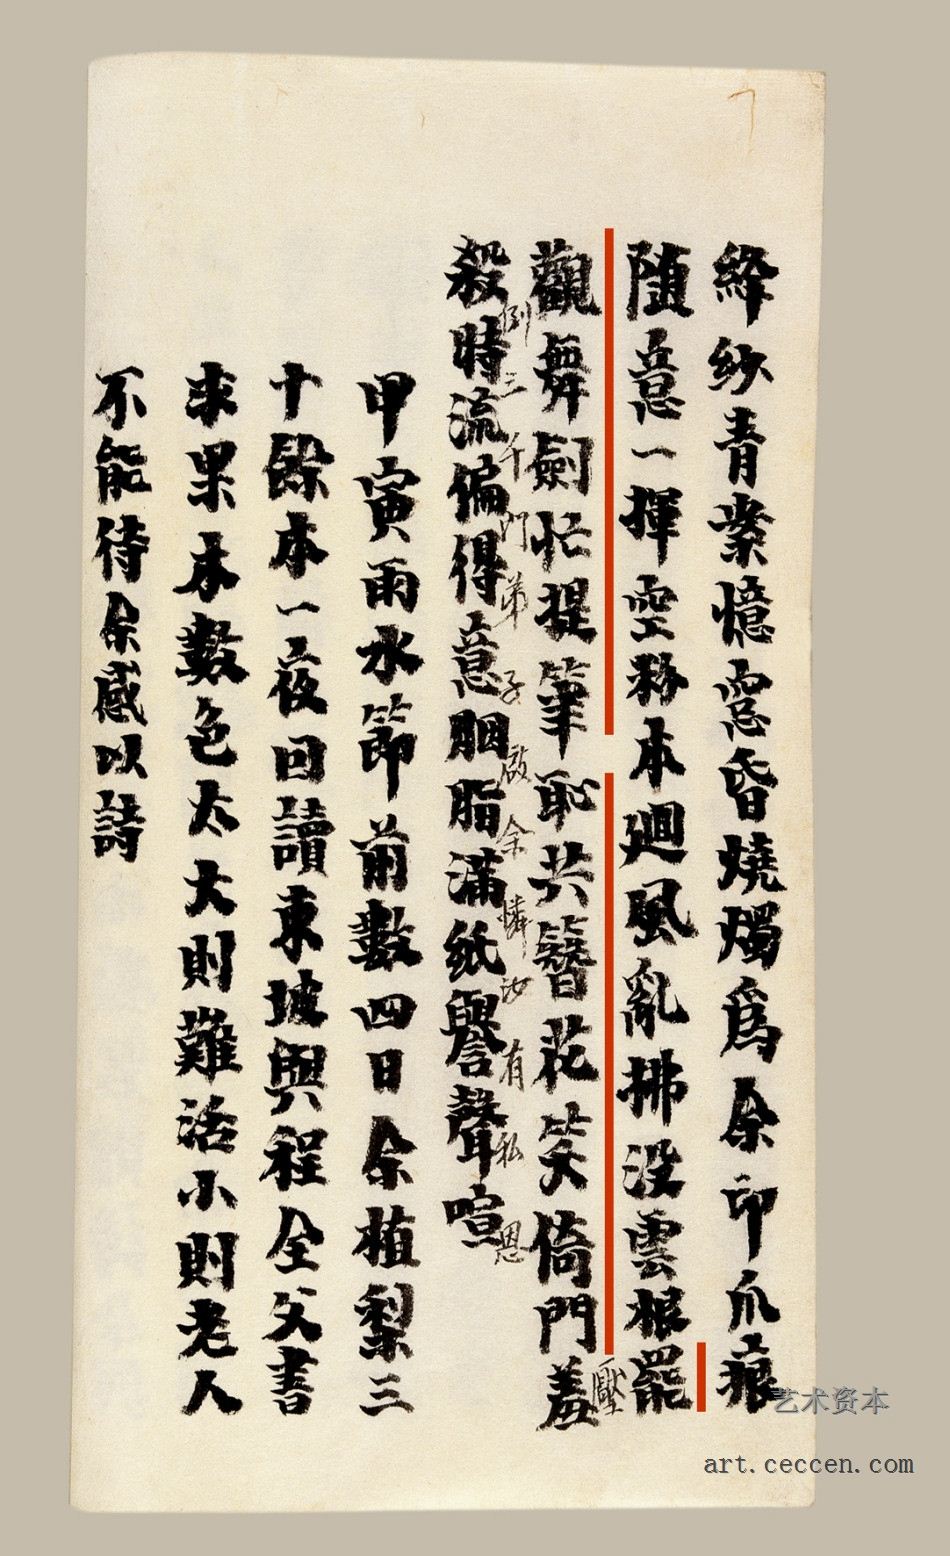 絳紗青案憶窻昏燒燭爲余印爪痕
随意一揮空粉本廻風亂拂没雲根罷
觀舞劍忙提筆恥共簪花笑倚門羞
壓
倒三千門弟子啟余憐汝有私恩
殺時流偏得意胭脂滿紙譽聲喧
甲寅雨水節前數四日余植梨三
十餘本一夜回讀東坡與程全父書
求果木數色太大則難活小則老人
不能待余感以詩
艺术资本
art.ceccen.com